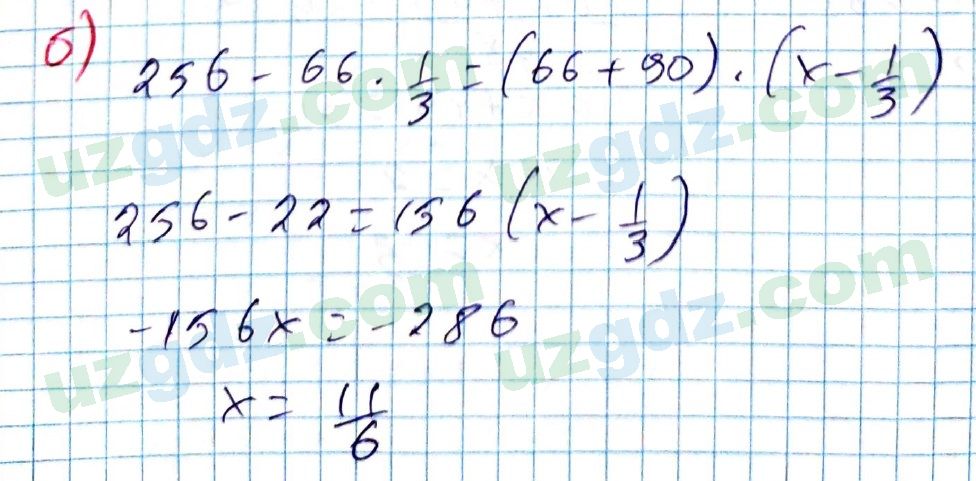 б) 256 - 66 · 1/3 = (66 + 90) · (x - 1/3)
256 - 22 = 156 (x - 1/3)
-156x = -286
x = 11/6
uzgdz.com
uzgdz.com
uzgdz.com
uzgdz.com